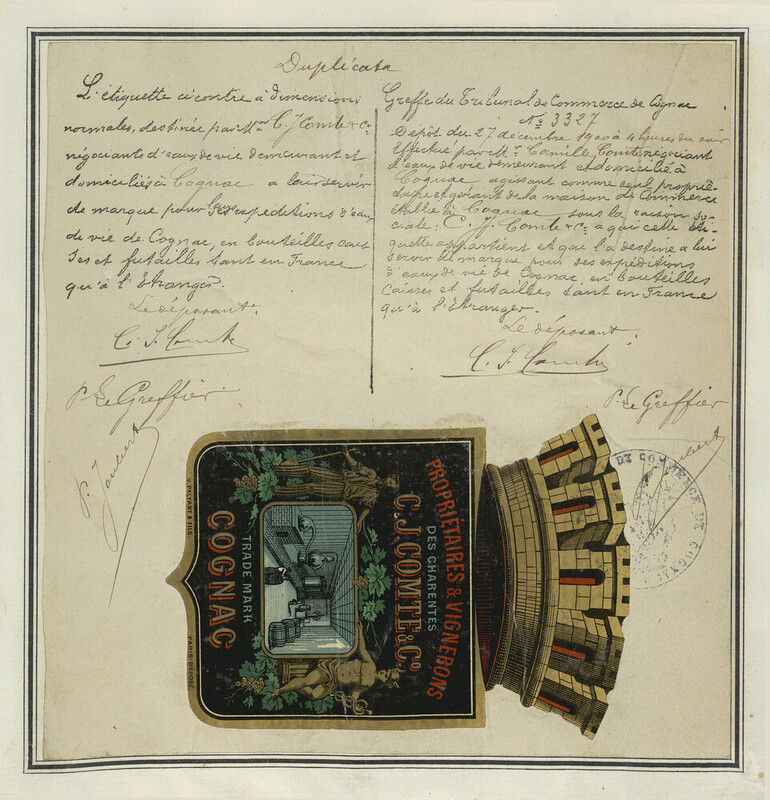 Duplicata
L'étiquette ci contre à dimensions
normales, destinée par Mrs C. J. Comte & Co
négociants d'eaux de vie demeurant et
domiciliés à Cognac a leur servir
de marque pour leurs expéditions d'eau
de vie de Cognac, en bouteilles cais
ses et futailles tant en France
qu'à l'Etranger.
Le déposant.
C. J. Comte
P. Le Greffier
P. Joubert
Greffe du Tribunal de Commerce de Cognac
No 3327
Dépôt du 27 décembre 1900 à 4 heures du soir
Effectué par Mr Camille Comte négociant
d'eaux de vie demeurant et domicilié à
Cognac agissant comme seul proprié-
taire et gérant de la maison de Commerce
établie à Cognac sous la raison so-
ciale: C. J. Comte & Co a qui cette éti-
quette appartient et que l'a destine a lui
servir de marque pour des expéditions
d'eaux de vie de Cognac, en bouteilles
caisses et futailles tant en France
qu'à l'Etranger.
Le déposant.
C. J. Comte
P. Le Greffier
DE COMMERCE DE COGNAC
PROPRIÉTAIRES & VIGNERONS
DES CHARENTES
C.J.COMTE & Co
TRADE MARK
COGNAC
V. PALYART & FILS
PARIS DÉPOSÉ